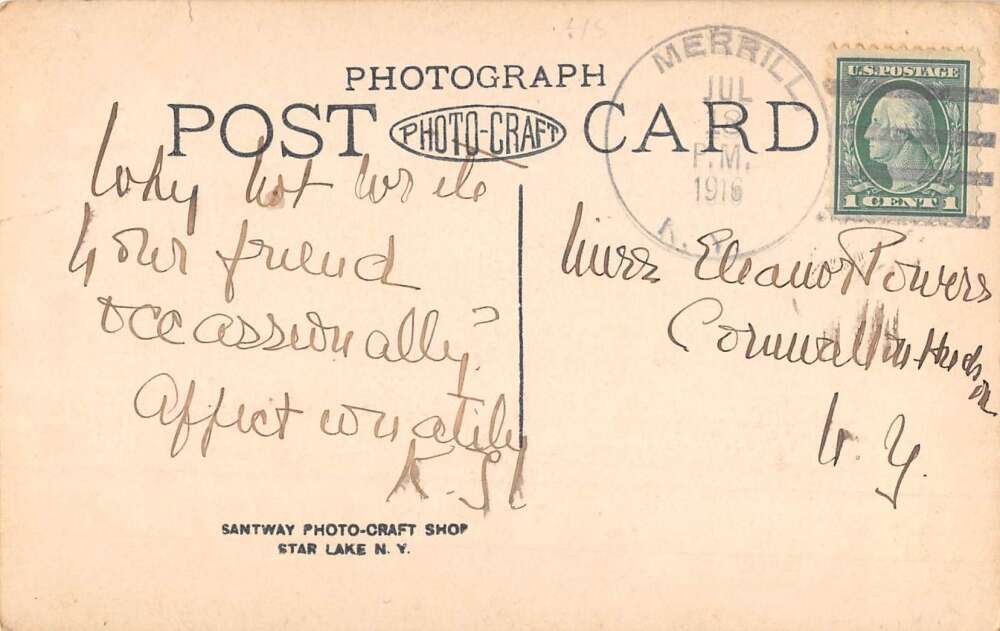 PHOTOGRAPH
POST PHOTO-CRAFT CARD
MERRILL
JUL
P.M.
1916
N.Y.
U.S. POSTAGE
1 CENT 1
Why not write
your friend
occassionally?
Affectionatily
Miss Eleanor Powers
Cornwall on Hudson
N. Y.
SANTWAY PHOTO-CRAFT SHOP
STAR LAKE N. Y.